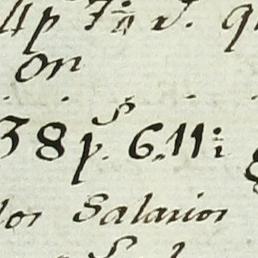 4p 7½ r. q
on
38 pˢ. 6.11½
los Salarios